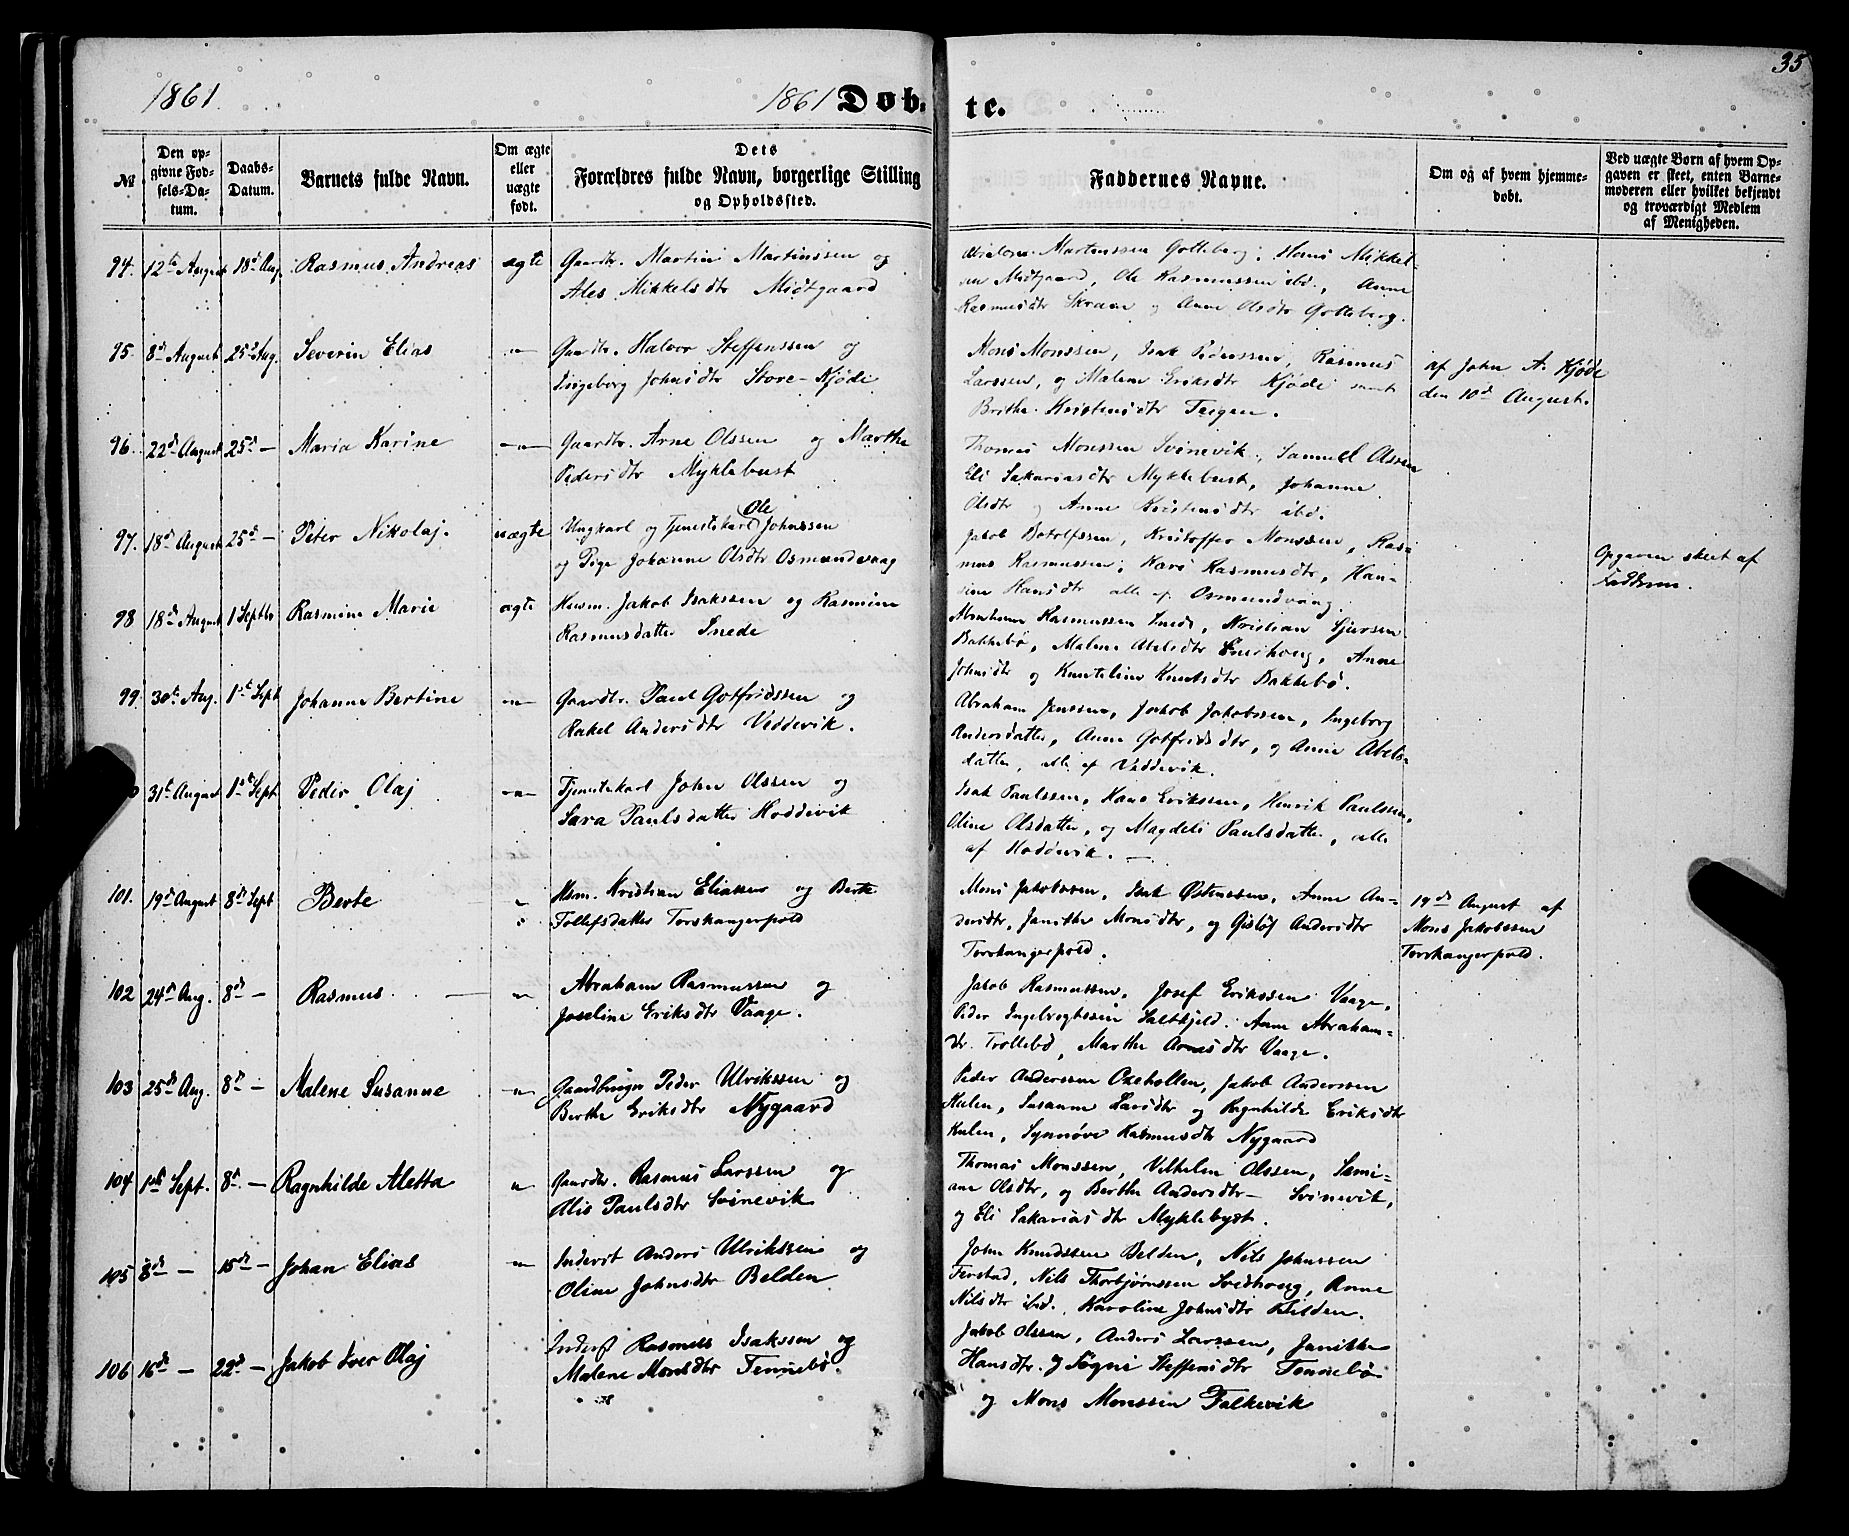 35
1861.
1861 Døb-
te.
№
Den op-
givne Fød-
sels-Da-
tum.
Daabs-
Datum.
Barnets fulde Navn.
Om ægte
eller
uægte
født.
Dets
Forældres fulde Navn, borgerlige Stilling
og Opholdssted.
Faddernes Navne.
Om og af hvem hjemme-
døbt.
Ved uægte Børn af hvem Op-
gaven er skeet, enten Barne-
moderen eller hvilket bekjendt
og troværdigt Medlem
af Menigheden.
94. 12te August 18de Aug. Rasmus Andreas ægte
Gaardbr. Martin Martinssen og
Ales Mikkelsdtr Midtgaard
Martenssen Gotteberg, Hans Mikkel-
sen Midtgaard, Ole Rasmussen ibd., Anne
Rasmusdtr Skram og Anne Olsdtr Gotteberg.
95. 8de August 25de Aug. Severin Elias —"—
Gaardbr. Halvor Steffenssen og
Ingeborg Johnsdtr Store-Kjøde
Mons Monssen, Isak Pederssen, Rasmus
Larssen, og Malene Eriksdtr Kjøde samt
Brithe Kristensdtr Teigen.
af John A. Kjøde
den 10de August.
96. 22de August 25de — Maria Karine —"—
Gaardbr. Arne Olssen og Marthe
Pedersdtr Myklebust
Thomas Monssen Svinevik, Samuel Olssen
Eli Sakariasdtr Myklebust, Johanne
Olsdtr og Anne Kristensdtr ibd.
97. 18de August 25de — Peter Nikolaj. uægte
Ungkarl og Tjenestekarl Ole Johnssen
og Pige Johanne Olsdtr Osmundsvaag
Jakob Botolfssen, Kristoffer Monssen, Ras-
mus Rasmussen, Kari Rasmusdtr, Han-
sine Hansdtr alle af Osmundvaag.
Opgaven skeet af
Fadderne.
98 18de August 1 Septbr Rasmine Marie ægte
Husm. Jakob Isakssen og Rasmine
Rasmusdatter Snede
Abraham Rasmussen Snede, Kristian Sjursen
Bakkebø, Malene Abelsdtr, Anne
Johnsdtr og Knuteline Knutsdtr Bakkebø.
99 30te Aug. 1ste Sept Johanne Bertine —"—
Gaardbr. Paul Gotfridssen og
Rakel Andersdtr Veddevik.
Abraham Jenssen, Jakob Jakobssen, Ingeborg
Andersdatter, Anne Gotfridsdtr, og Anne Abels-
datter, alle af Veddevik.
31te August 1ste Sept. Peder Olaj —"—
Tjenestekarl John Olssen og
Sara Paulsdatter Hoddevik
Isak Paulssen, Hans Erikssen, Henrik Paulssen,
Oline Olsdatter, og Magdeli Paulsdatter, alle
af Hoddevik. —
101. 19de August 8de Sept Berte "
Hsm. Kristian Eliassen og Berte
Tollefsdatter Torskangerpold
Mons Jakobssen, Isak Østenssen, Anne An-
dersdtr, Janithe Monsdtr, og Gisløf Andersdtr
Torskangerpold.
19de August af
Mons Jakobssen
Torskangerpold.
102 24de Aug. 8de — Rasmus "
Abraham Rasmussen og
Joseline Eriksdtr Vaage.
Jakob Rasmussen, Josef Erikssen Vaage,
Peder Ingebregtssen Saltkjeld, Anne Abraham-
dtr. Trollebø, Marthe Arnesdtr Vaage.
103 25de Aug. 8de — Malene Susanne —"
Gaardbruger Peder Ulrikssen og
Berthe Eriksdtr Nygaard
Peder Anderssen Oxeholten, Jakob Anderssen
Hulen, Susanne Larsdtr og Ragnhilde Eriksdtr
Hulen, Synnøve Rasmusdtr Nygaard
104 1ste Sept. 8de — Ragnhilde Aletta "
Gaardbr. Rasmus Larssen og
Alis Paulsdtr Svinevik
Thomas Monssen, Vilhelm Olssen, Semi-
ane Olsdtr, og Berthe Andersdtr — Svinevik,
og Eli Sakariasdtr Myklebyst.
105 8de — 15de — Johan Elias —"
Inderst Anders Ulrikssen og
Oline Johnsdtr Belden
John Knudssen Belden, Nils Johnssen
Ferstad, Nils Thorbjørnssen, Anne
Nilsdtr ibd. Karoline Johnsdtr Belden.
106 16de — 22de — Jakob Iver Olaj
Inderst Rasmus Isakssen og
Malene Monsdtr Tennebø
Jakob Olssen, Anders Larssen, Janikke
Hansdtr. og Søgni Steffensdtr Tennebø
og Mons Monssen Falkevik